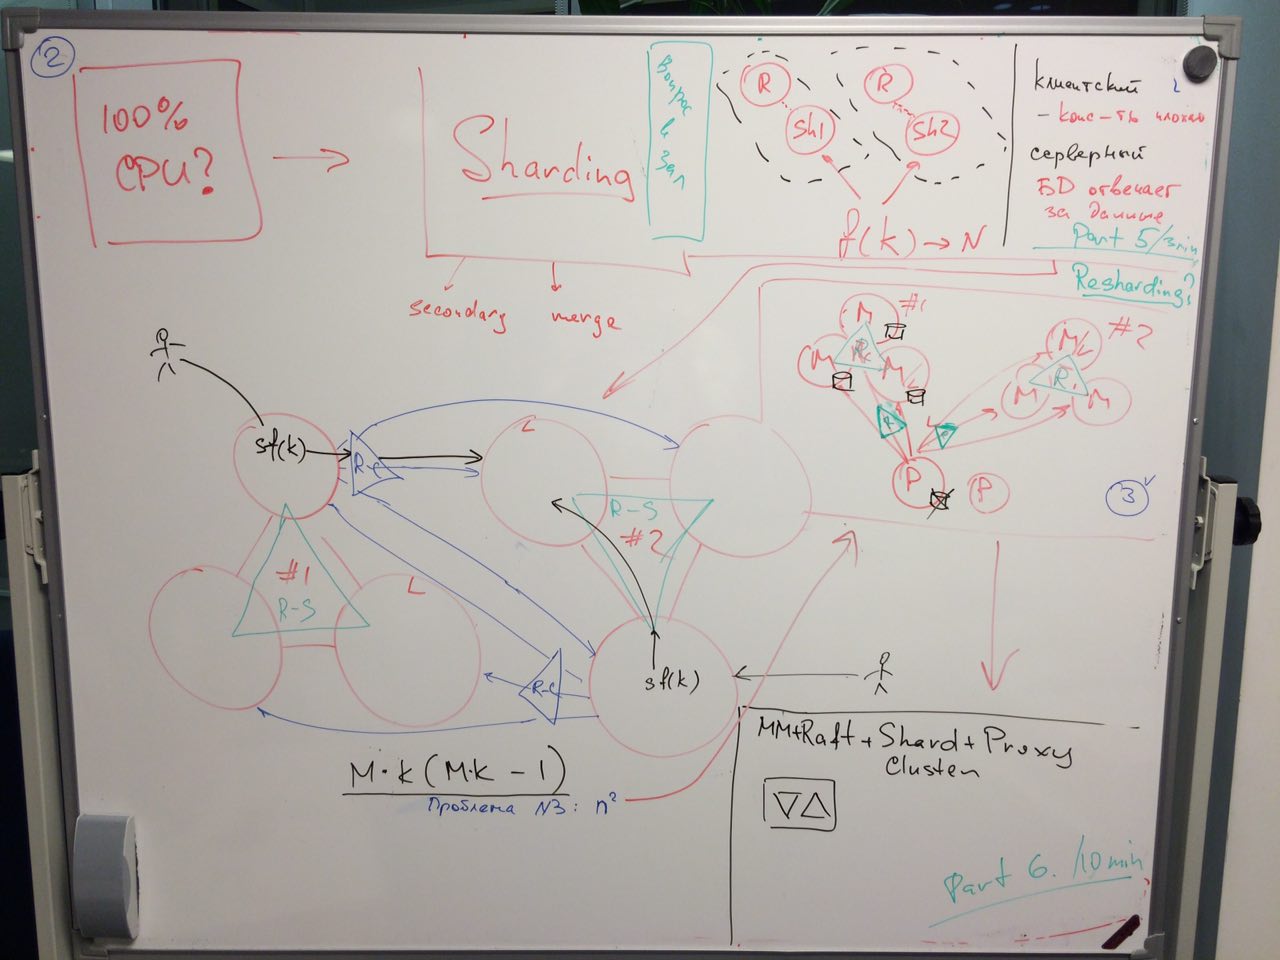 2
100%
CPU?
Sharding
secondary
merge
Вопрос
в
Зал
R
Sh1
R
Sh2
f(k) → N
клиентский
- конс-ть плохая
серверный
БД отвечает
за данные
Part 5/3min
Resharding?
M
#1
M
M
R
M
#2
M
M
R
P
P
3
sf(k)
R-C
L
R-S
#2
#1
R-S
L
R-C
sf(k)
M·k(M·k - 1)
Проблема N3: n²
MM+Raft+Shard+Proxy
Cluster
Part 6. /10min